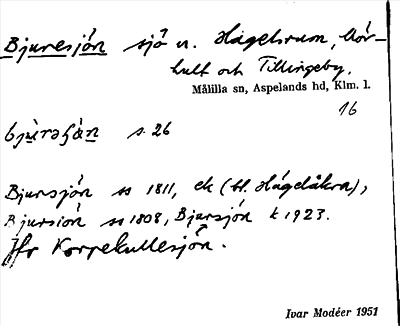 Bjuresjön sjö v. Hagelsrum, Mör-
hult och Tillingeby.
Målilla sn, Aspelands hd, Klm. l.
16
s. 26
Bjursjön ss 1811, ek (bl. Hagelåkra),
Bjursiön ss 1808, Bjursjön k 1923.
Jfr Korpekullesjön.
Ivar Modéer 1951